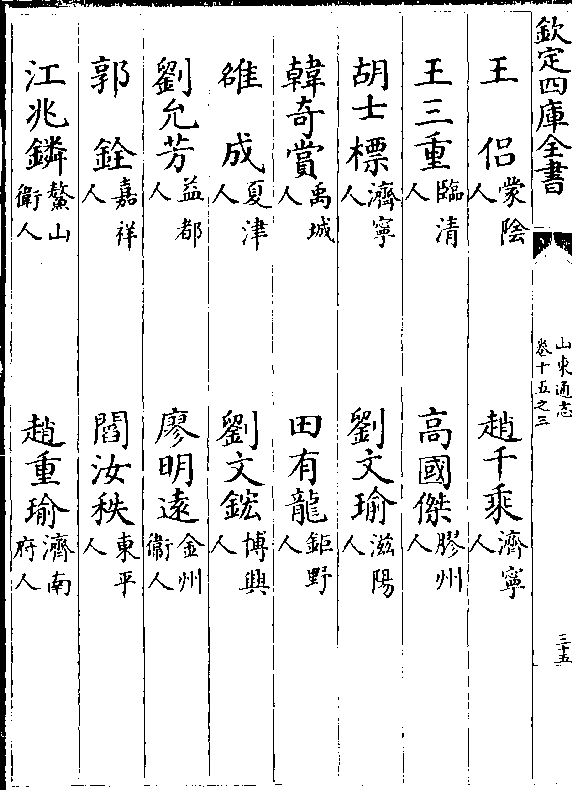 欽定四庫全書
山東通志
卷十五之三
三十五
王侣 蒙陰人 趙千乘 濟寧人
王三重 臨清人 高國傑 膠州人
胡士標 濟寧人 劉文瑜 滋陽人
韓奇賞 禹城人 田有龍 鉅野人
雒成 夏津人 劉文鋐 博興人
劉允芳 益都人 廖明遠 金州衞人
郭銓 嘉祥人 閻汝秩 東平人
江兆鱗 鰲山衞人 趙重瑜 濟南府人